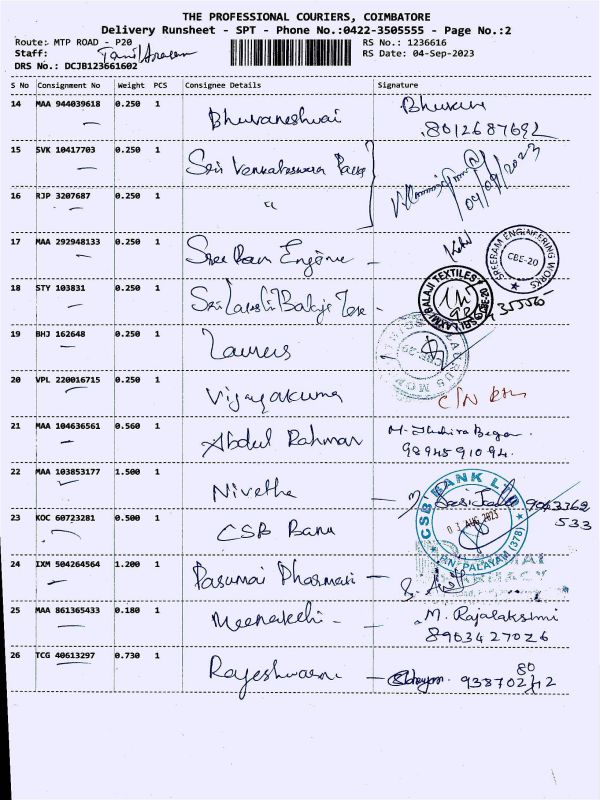 THE PROFESSIONAL COURIERS, COIMBATORE
Delivery Runsheet - SPT - Phone No.:0422-3505555 - Page No.:2
Route: MTP ROAD - P20 RS No.: 1236616
Staff: RS Date: 04-Sep-2023
DRS No.: DCJB123661602
S No Consignment No Weight PCS Consignee Details Signature
14 MAA 944039618 0.250 1 Bhuvaneshwai
8012687692
15 SVK 10417703 0.250 1 Sri Venkateswara
16 RJP 3207687 0.250 1 " 04/09/2023
17 MAA 292948133 0.250 1 Sree Ram Engine
SREERAM ENGINEERING WORKS CBE-20
18 STY 103831 0.250 1 Sri Lakshmi Balaji Tex
SRI LAXMI BALAJI TEXTILES
19 BHJ 162648 0.250 1 Laurus
20 VPL 220016715 0.250 1 Vijayakuma
21 MAA 104636561 0.560 1 Abdul Rahman M.
9894591094.
22 MAA 103853177 1.500 1 Nivetha
533
CSB BANK LTD
03 AUG 2023
23 KOC 60723281 0.500 1 CSB Bank
24 IXM 504264564 1.200 1 Pasumai Pharmaci
25 MAA 861365433 0.180 1 Meenakchi M. Rajalaksimi
8903427026
26 TCG 40613297 0.730 1 Rajeshwarni